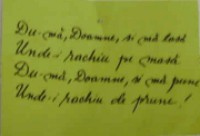 Du-mă, Doamne, si mă lasă
Unde-i rachiu pe masă.
Du-mă, Doamne, si mă pune
Unde-i rachiu de prune!